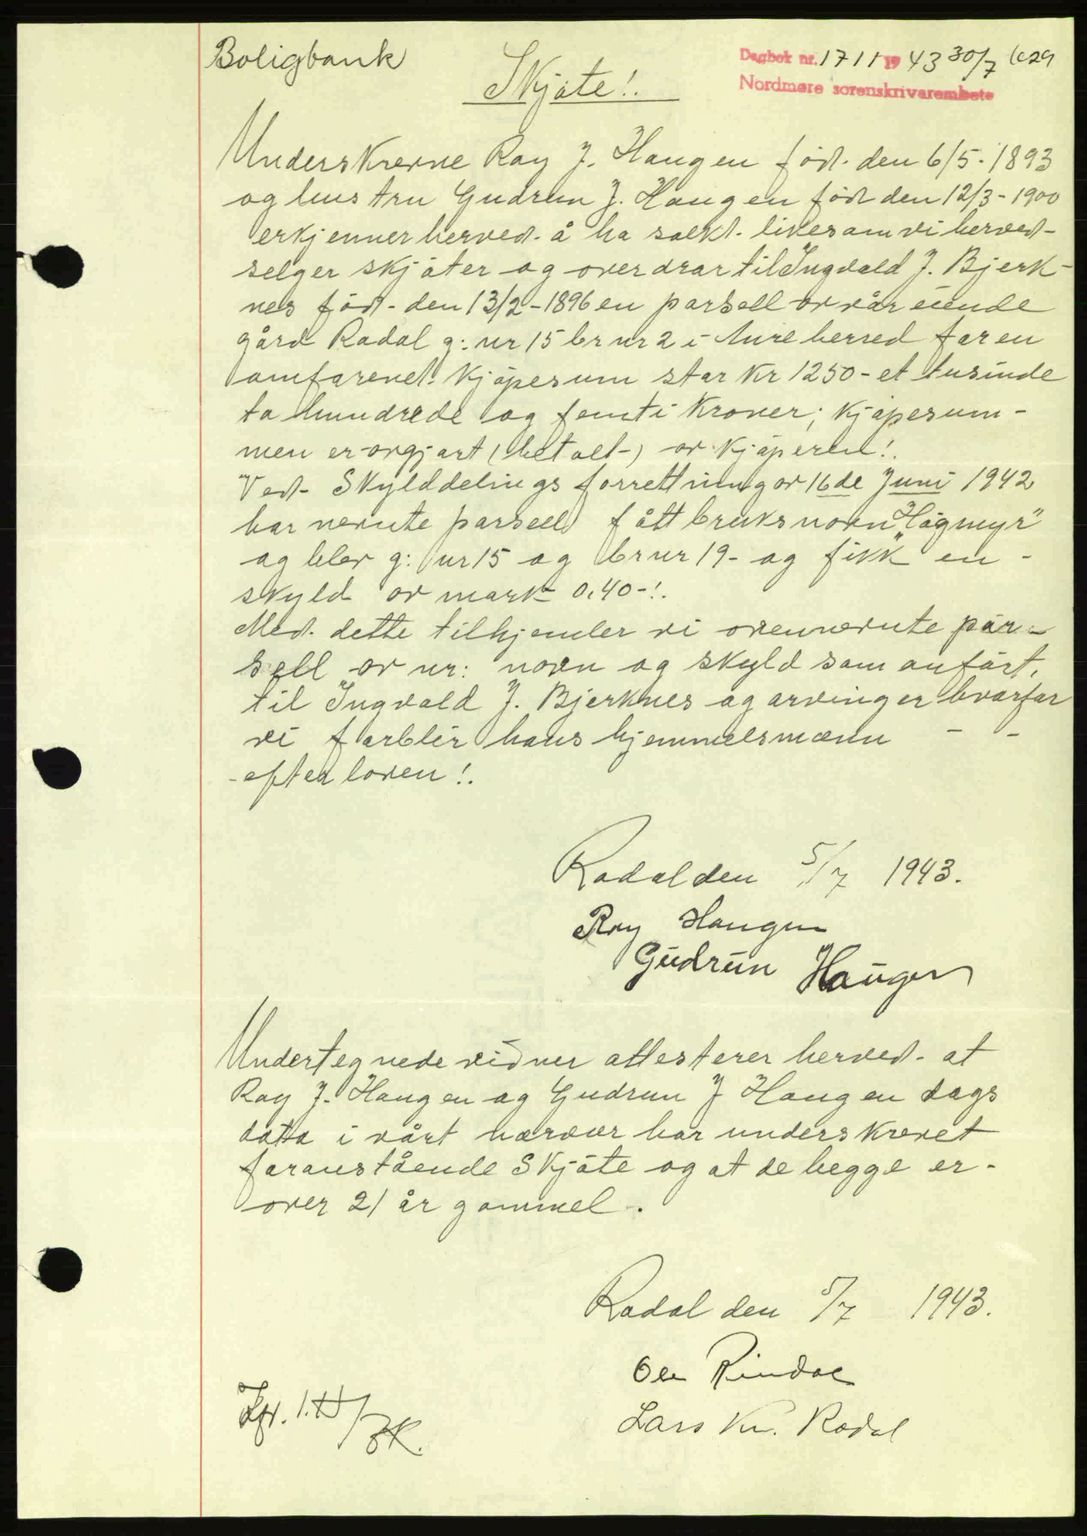 Boligbank
Dagbok nr. 1711 19 43 30/7
Nordmøre sorenskrivarembete
Skjøte!.
Underskrevne Roy J. Haugen født den 6/5-1893
og hustru Gudrun J. Haugen født den 12/3-1900
erkjenner herved å ha solkt likesom vi herved-
selger skjøter og overdrar til Ingvald J. Bjerk-
nes født- den 13/2-1896 en parsell av vår eiende
gård Rodal g: nr 15 br nr 2 i Aure herred for en
omforenet. Kjøpesum stor Kr 1250- et tusinde
to hundrede og femti Kroner; Kjøpesum-
men er avgjort (betalt-) av kjøperen!.
Ved- Skylddelings forrettning av 16de Juni 1942
har nevnte parsell fått bruksnavn "Høgmyr"
og blev g: nr 15 og br nr 19- og fikk en -
skyld av mark 0,40-!.
Med. dette tilhjemler vi ovennevnte par-
sell av nr: navn og skyld som anført,
til Ingvald J. Bjerknes og arvinger hvorfor
vi forblir hans hjemmelsmenn - -
-efter loven!.
Rodal den 5/7 1943.
Roy Haugen
Gudrun Haugen
Undertegnede vidner attesterer herved- at
Roy J. Haugen og Gudrun J Haugen dags
dato i vårt nærvær har underskrevet
foranstående Skjøte og at de begge er-
over 21 år gammel.
Rodal den 5/7 1943.
Ole Rindal
Lars Kr. Rodal